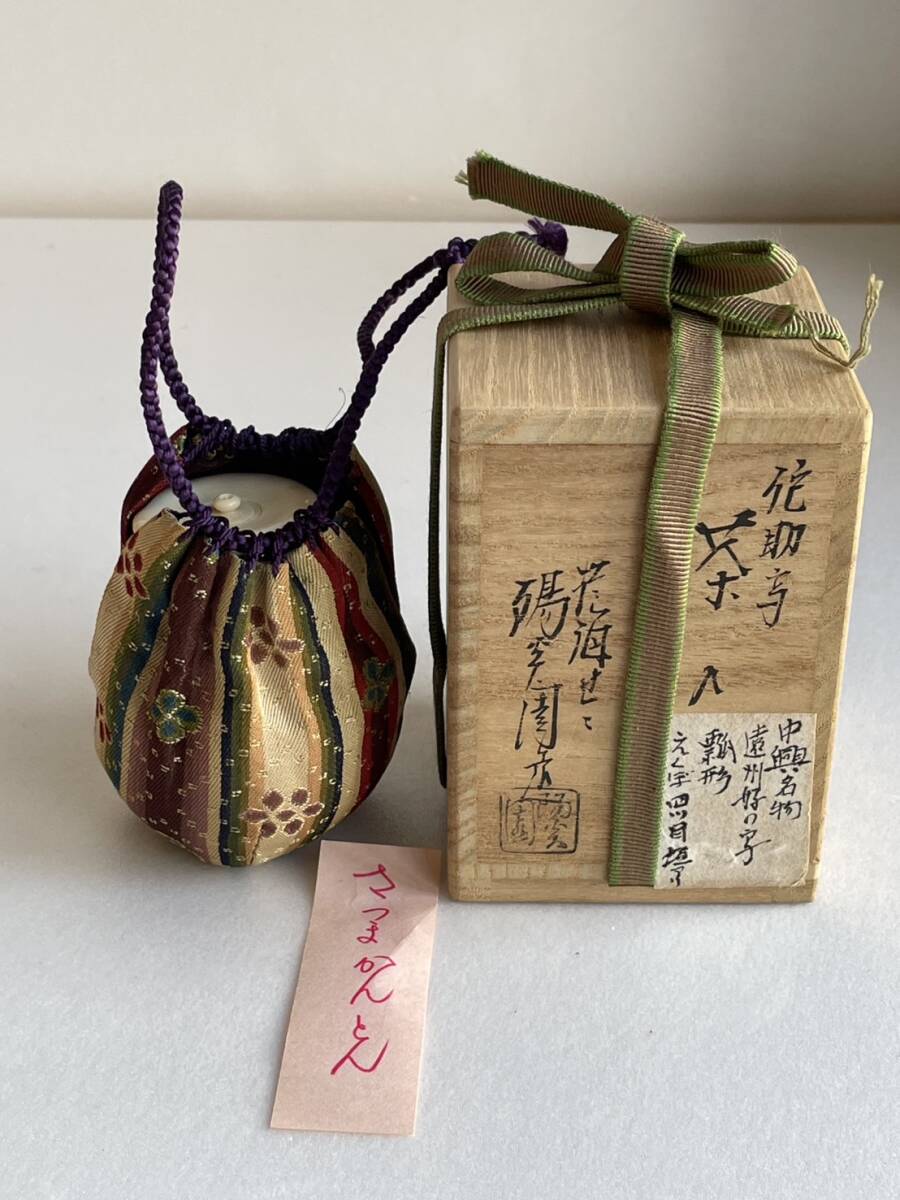 佗助写
茶入
花海せと
陽炎園
中興名物
遠州好の写
瓢形
えくぼ四ツ目垣
さつまかんとん